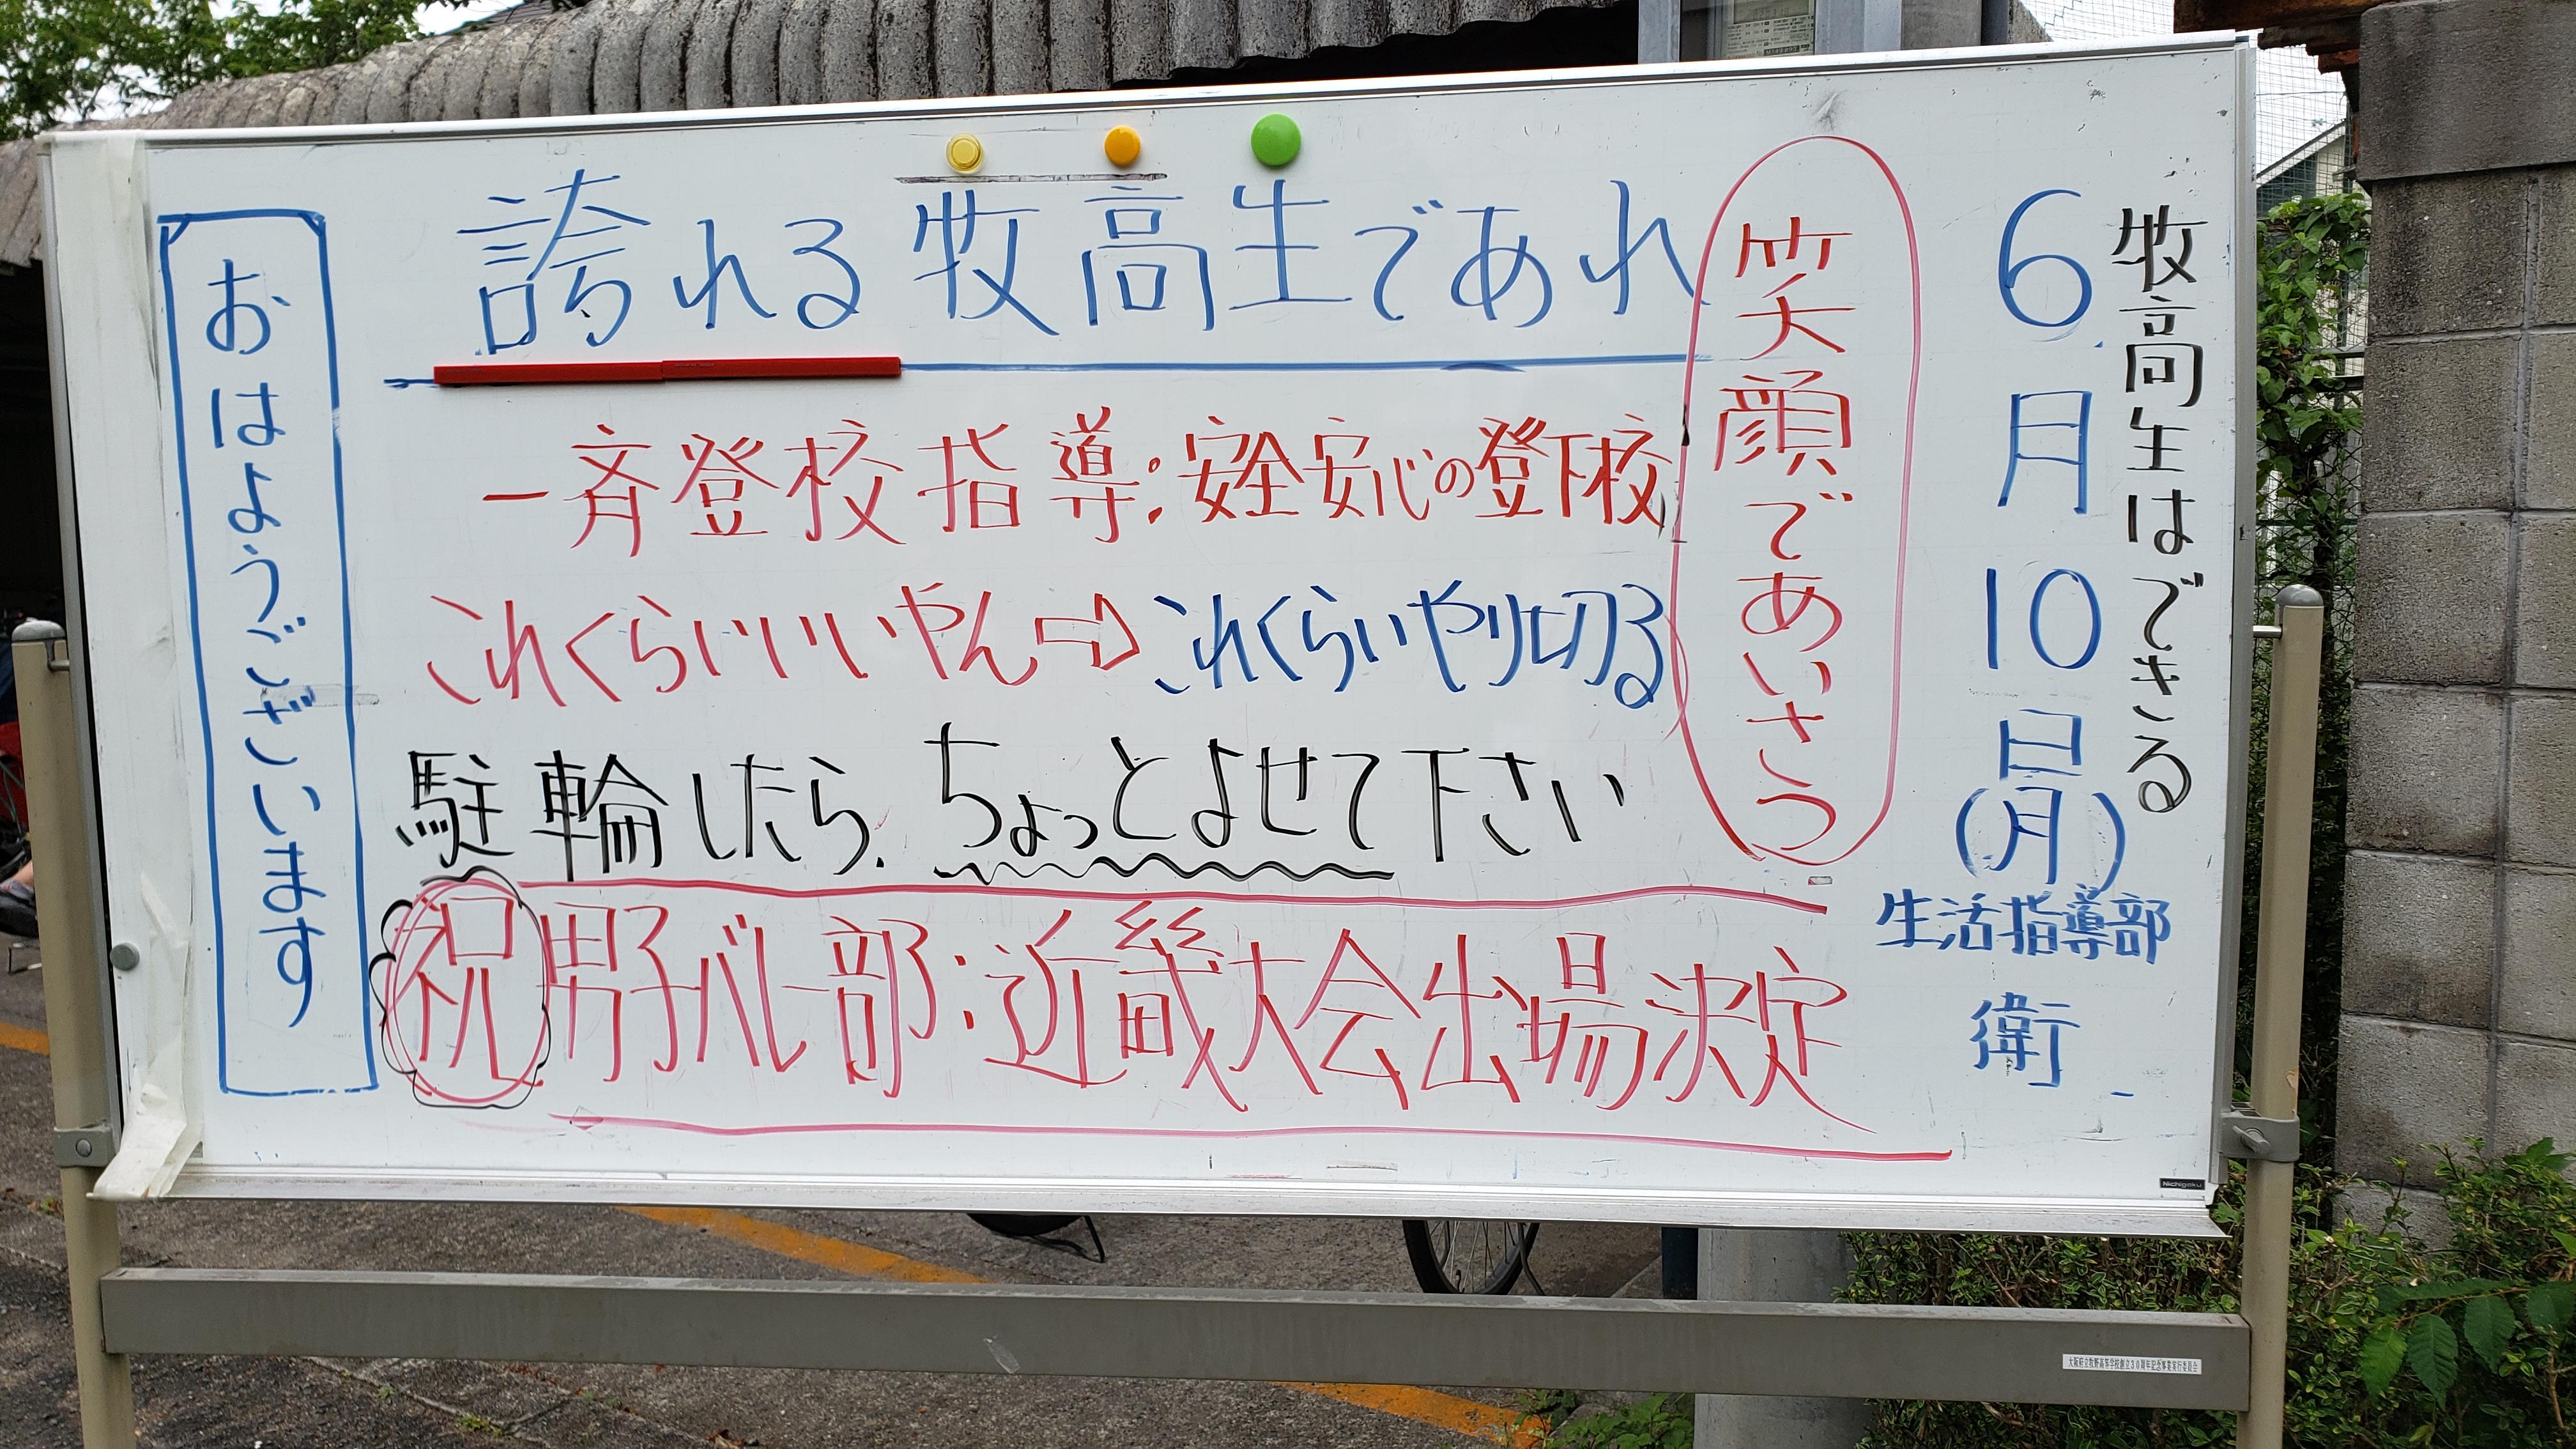 牧高生はできる
6月10日(月)
生活指導部
衛
笑顔であいさつ
誇れる牧高生であれ
一斉登校指導:安全安心の登下校
これくらいいいやん⇨これくらいやり切る
駐輪したら、ちょっとよせて下さい
祝男子バレー部:近畿大会出場決定
おはようございます
Nichigaku
大阪府立牧野高等学校創立30周年記念事業実行委員会